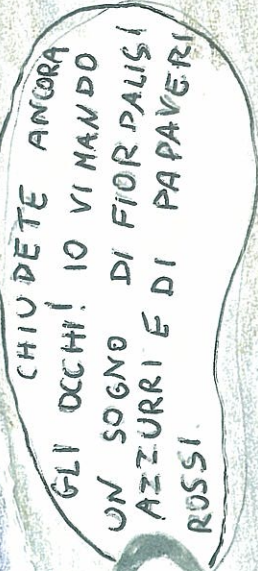 CHIUDETE ANCORA
GLI OCCHI! IO VI MANDO
UN SOGNO DI FIORDALISI
AZZURRI E DI PAPAVERI
ROSSI.